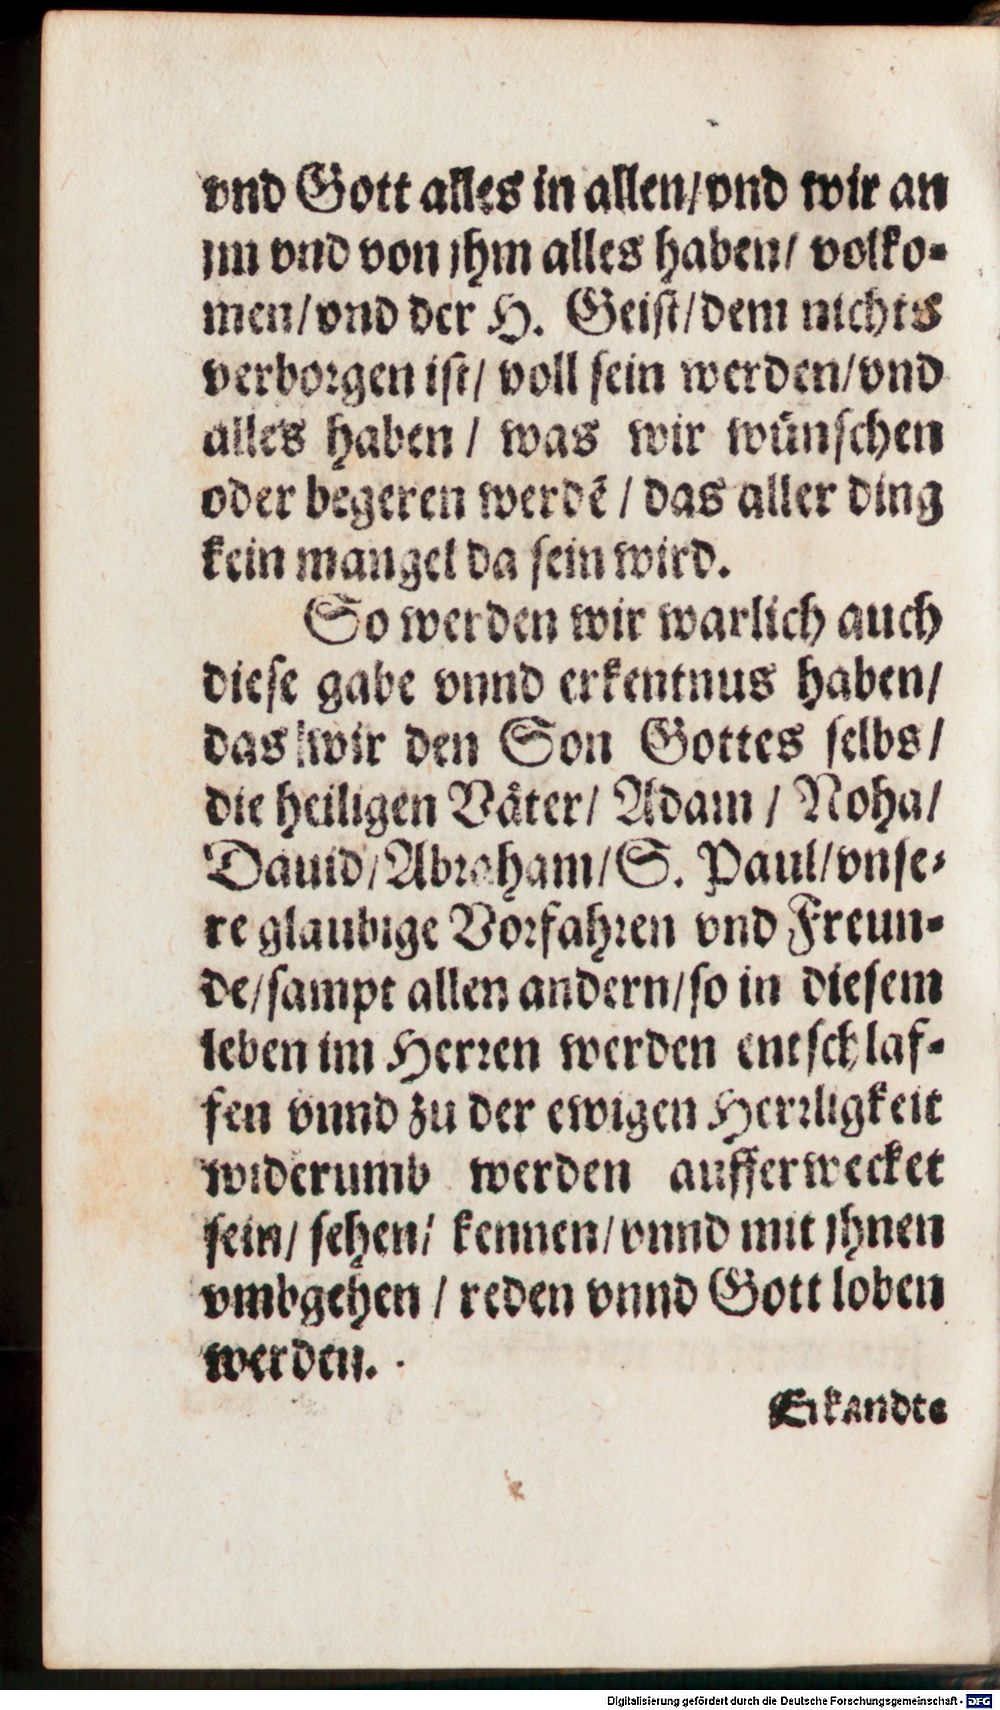 vnd Gott alles in allen/vnd wir an
jm vnd von jhm alles haben/ volko-
men/vnd der H. Geist/dem nichts
verborgen ist/ voll sein werden/vnd
alles haben / was wir wuͤnschen
oder begeren werdē / das aller ding
kein mangel da sein wird.
So werden wir warlich auch
diese gabe vnnd erkentnus haben/
das wir den Son Gottes selbs/
die heiligen Vaͤter/ Adam / Noha/
Dauid/Abraham/S. Paul/vnse-
re glaubige Vorfahren vnd Freun-
de/sampt allen andern/so in diesem
leben im Herren werden entschlaf-
fen vnnd zu der ewigen Herrligkeit
widerumb werden aufferwecket
sein/ sehen/ kennen/vnnd mit jhnen
vmbgehen / reden vnnd Gott loben
werden.
Erkandte
Digitalisierung gefördert durch die Deutsche Forschungsgemeinschaft - DFG